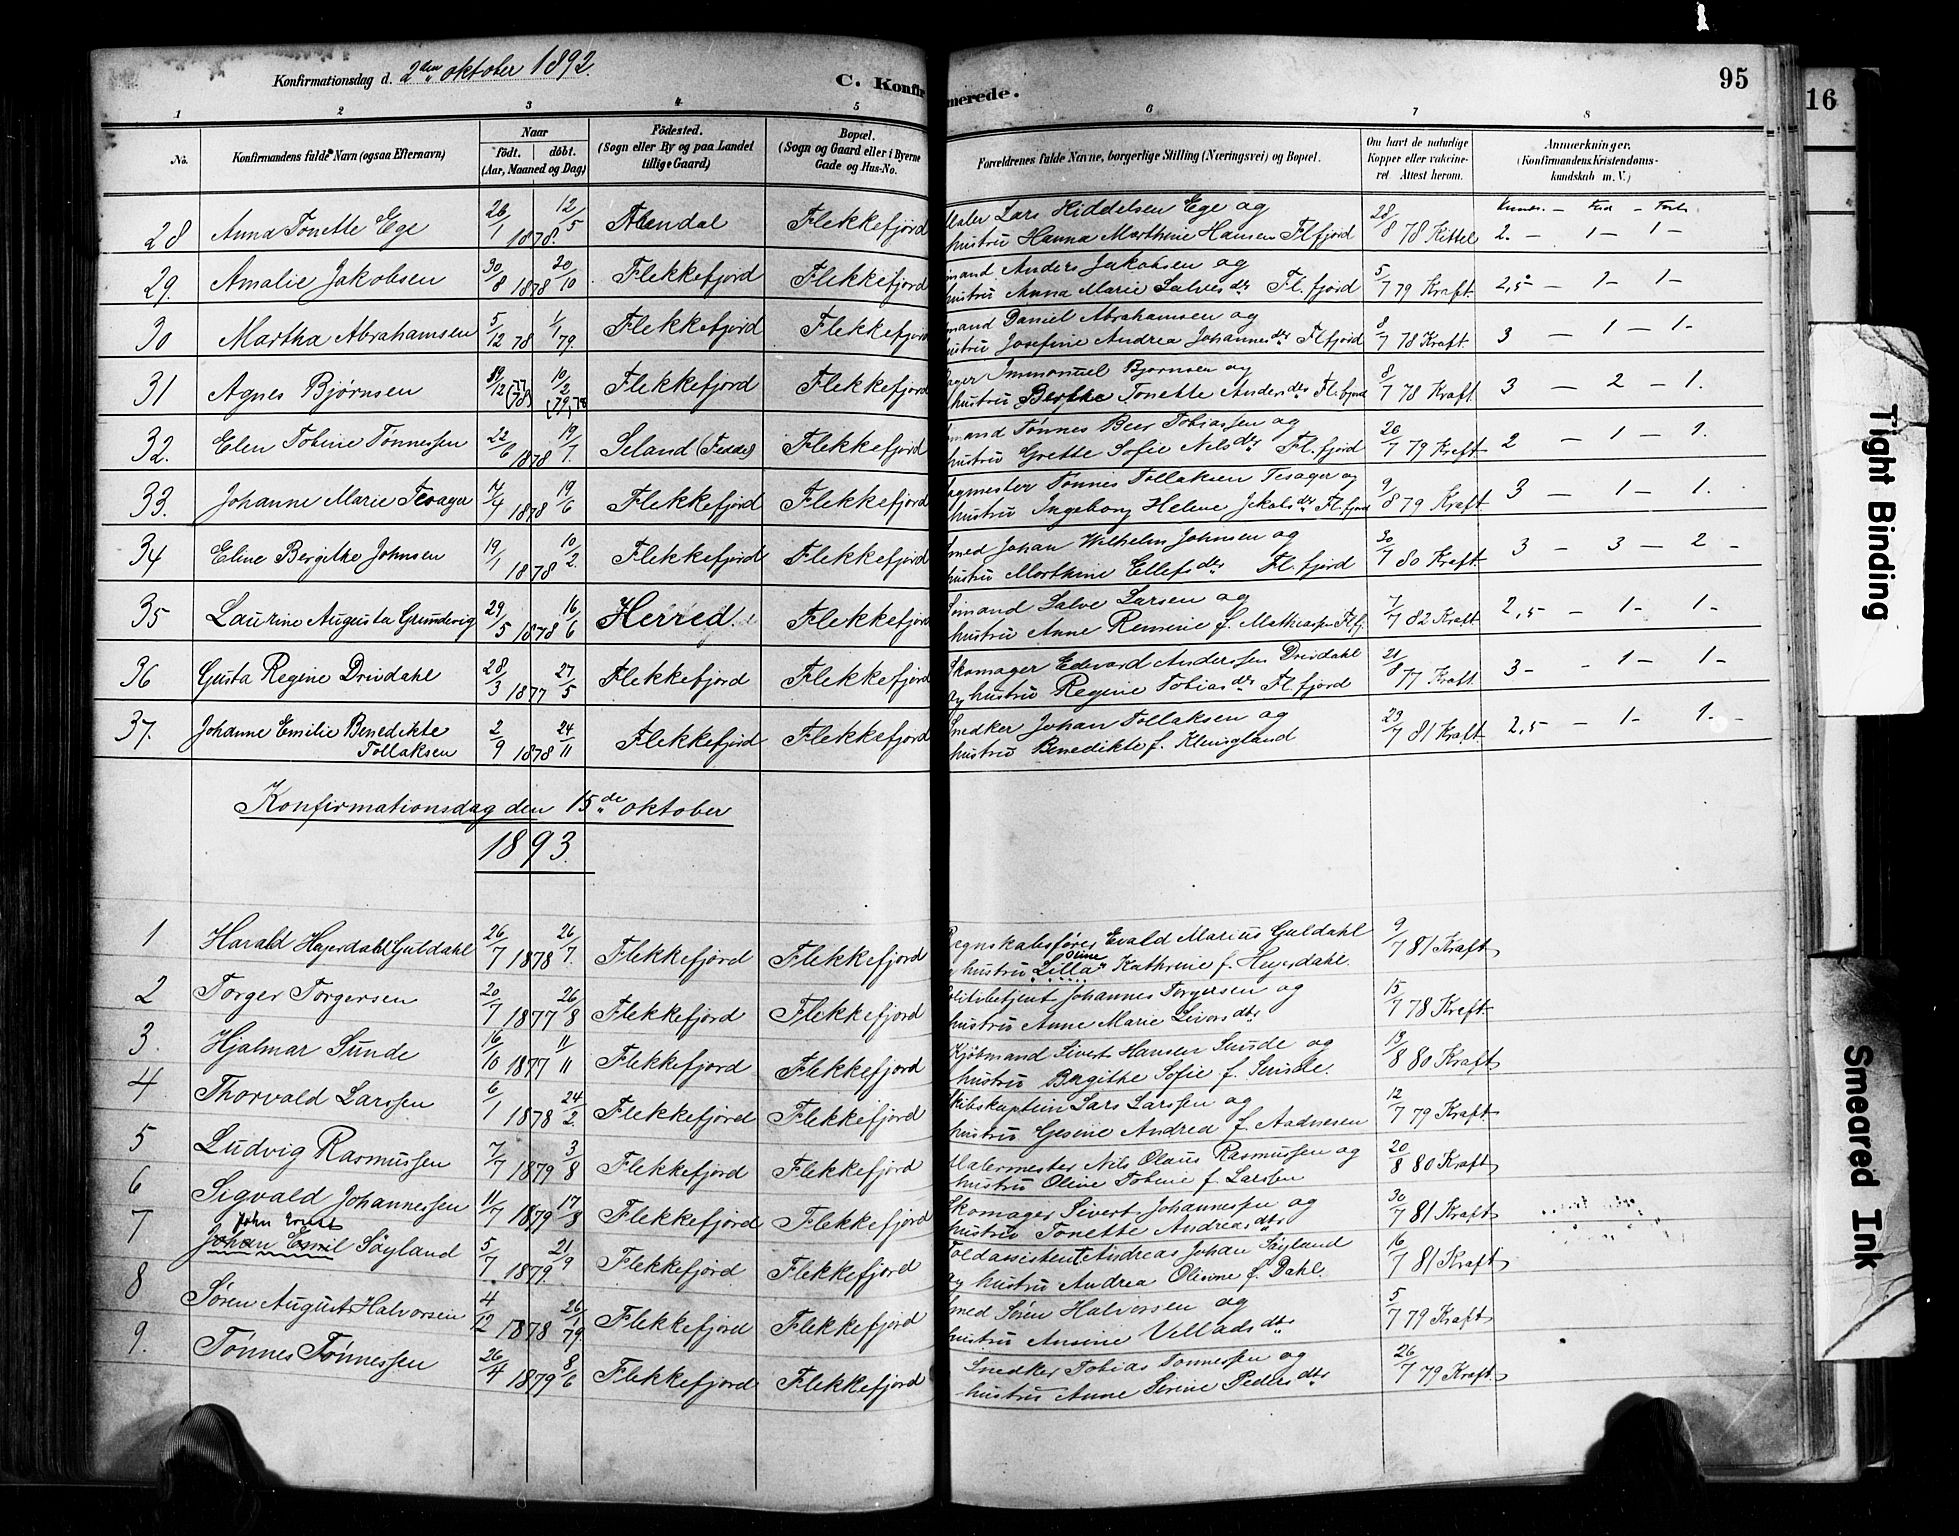 Konfirmationsdag d. 2den oktober 1892.
C. Konfir
merede.
95
16
1 2 3 4 5 6 7 8
No.
Konfirmandens fulde Navn (ogsaa Efternavn)
Naar
født. døbt.
(Aar, Maaned og Dag)
Fødested.
(Sogn eller By og paa Landet
tillige Gaard)
Bopæl.
(Sogn og Gaard eller i Byerne
Gade og Hus-No.
Forældrenes fulde Navne, borgerlige Stilling (Næringsvei) og Bopæl.
Om havt de naturlige
Kopper eller vakcine-
ret Attest herom.
Anmærkninger.
(Konfirmandens Kristendoms-
kundskab m. V.)
28 Anna Tonette Ege 26/1 1878. 12/5 Flekkefjord
Maler Lars Hiddelsen Ege og
hustru Hanna Marthine Hansen Fl.fjord 28/8 78 Kittel 2. – 1 – 1 –
29. Amalie Jakobsen 30/8 1878 20/10 Flekkefjord Flekkefjord
mand Anders Jakobsen og
hustru Anna Marie Salvesdtr Fl. fjord 5/7 79 Kraft 2,5 – 1 – 1 –
30 Martha Abrahamsen 5/12 78 1/1 79. Flekkefjord Flekkefjord
mand Daniel Abrahamsen og
hustru Josefine Andrea Johannesdtr Fl fjord 8/7 78 Kraft. 3 – 1 – 1 –
31 Agnes Bjørnsen Flekkefjord Flekkefjord
Immanuel Bjørnsen og
hustru Berthe Tonette Andersdtr Fl. fjord 8/7 78 Kraft. 3 – 2 – 1.
32. Elen Tobine Tønnessen 22/6 1878 19/7. Seland (Fedde) Flekkefjord
mand Tønnes Beer Tobiassen og
hustru Grette Sofie Nelsdtr Fl. fjord 26/7 79 Kraft 2 – 1 – 1.
33. Johanne Marie Tesager 7/4 1878 19/6 Flekkefjord Flekkefjord
Tønnes Tollaksen Tesager og
hustru Ingeborg Helene Jakobsdtr Fl. fjord 9/8 79 Kraft 3 – 1 – 1.
34 Eline Bergithe Johnsen 19/1 1878 10/2. Flekkefjord Flekkefjord
Smed Johan Wilhelm Johnsen og
hustru Marthine Ellefsdtr Fl. fjord 30/7 80 Kraft 3 – 3 – 2 –
35 Laurine Augusta Grundevig 29/5 1878 16/6 Herred Flekkefjord
Sømand Salve Larsen og
hustru Anne f. 7/7 82 Kraft 2,5 – 1 – 1 –
36 Gusta Regine Drivdahl 28/3 1877 27/5 Flekkefjord Flekkefjord
Skomager Edward Anderssen Drivdahl
og hustru Regine Tobiasdtr Fl. fjord 21/8 77 Kraft. 3 – 1 – 1 –
37. Johanne Emilie Benedikte
Tollaksen 2/9 1878 24/11 Flekkefjord Flekkefjord
Snedker Johan Tollaksen og
hustru Benedikte f. Klungland 23/7 81 Kraft. 2,5 – 1 – 1 –
Konfirmationsdag den 15de oktober
1893.
1 Harald Heyerdahl Guldahl 26/7 1878 26/7. Flekkefjord Flekkefjord
Regnskabsfører Evald Marius Guldahl
og hustru "Lilla" Kathrine f. Heyerdahl. 9/7 81 Kraft
2 Torger Torgersen 20/7 1877 26/8 Flekkefjord Flekkefjord
Politibetjent Johannes Torgersen og
hustru Anne Marie Sivorsdtr 15/7 78 Kraft
3. Hjalmar Sunde 16/10 1877 11/11 Flekkefjord Flekkefjord
Kjøbmand Sivert Hansen Sunde og
hustru Bergithe Sofie f. Sunde. 13/8 80 Kraft
4 Thorvald Larssen 6/1 1878 24/2. Flekkefjord Flekkefjord
Skibskaptein Lars Larssen og
hustru Gesine Andrea f. Aadnesen 12/7 79 Kraft
5 Ludvig Rasmussen 7/7 1879 3/8 Flekkefjord Flekkefjord
Malermester Nils Olaus Rasmussen og
hustru Oline Tobine f. Larssen 20/8 80 Kraft
6 Sigvald Johannessen 11/7 1879 17/8 Flekkefjord Flekkefjord
Skomager Sivert Johannessen og
hustru Tonette Andreasdtr 30/7 81 Kraft
7 John Ernst
Johan Emil Søyland 5/7 1879. 21/9 Flekkefjord Flekkefjord
Toldassistent Andreas Johan Søyland
og hustru Andrea Olisine f. Dahl. 16/7 81 Kraft
8 Søren August Halvorsen 4/12 1878 26/1 79 Flekkefjord Flekkefjord
Smed Søren Halvorssen og
hustru Ansine Velladsdtr 5/7 79 Kraft
9. Tønnes Tønnessen 26/4 1879 8/6 Flekkefjord Flekkefjord
Snedker Tobias Tønnessen og
hustru Anne Serine Pedersdtr 26/7 79 Kraft.
Tight Binding
Smeared Ink